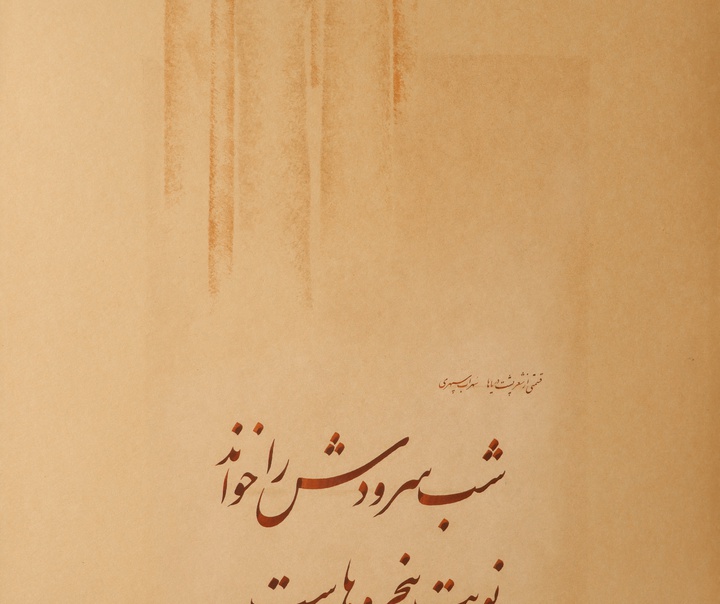 قسمتی از شعر پشت دریاها سهراب سپهری
شب سرودش را خواند
نوبت پنجره‌هاست